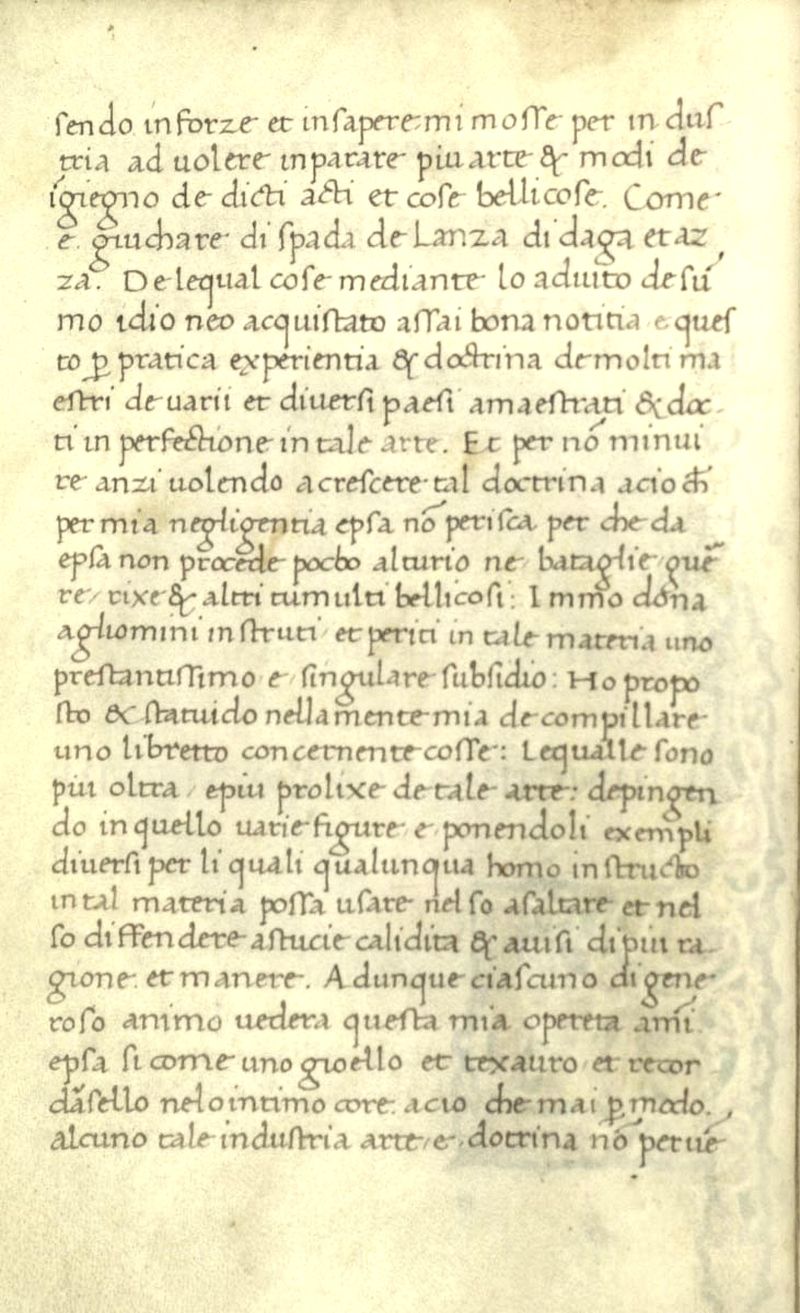 sendo in forze et in sapere; mi mosse per in dus
tria ad uolere inparare piu arte & modi de
igiegno de dicti acti et cose bellicose. Come
e. giuchare di spada de Lanza di daga et az
za. De lequal cose mediante lo adiuto de sũ
mo idio neo acquistato assai bona notitia e ques
to ꝑ pratica experientia & doctrina de molti ma
estri de uarii et diuersi paesi amaestrati & doc
ti in perfectione in tale arte. Et per nõ minui
re anzi uolendo acrescere tal doctrina acio ch̃
per mia negligentia epsa nõ perisca per che da
epsa non procede pocho alturio ne bataglie guer̃
re / rixe & altri tumulti bellicosi: Immo dona
agliomini instruti et periti in tale materia uno
prestantissimo e singulare subsidio: Ho propo
sto & statuido nella mente mia de compillare
uno libretto concernente cosse: Lequalle sono
piu oltra / epiu prolixe de tale arte: depingen
do in quello uarie figure e ponendoli exempli
diuersi per li quali qualunqua homo instructo
in tal materia possa usare nel so asaltare et nel
so diffendere astucie calidita & auisi di piu ra
gione. et manere. Adunque ciascuno di gene
roso animo uedera questa mia opereta ami
epsa si come uno gioello et texauro et recor
dãsello nelo intimo core. acio che mai ꝑ modo.
alcuno tale industria arte / e doctrina nõ perue